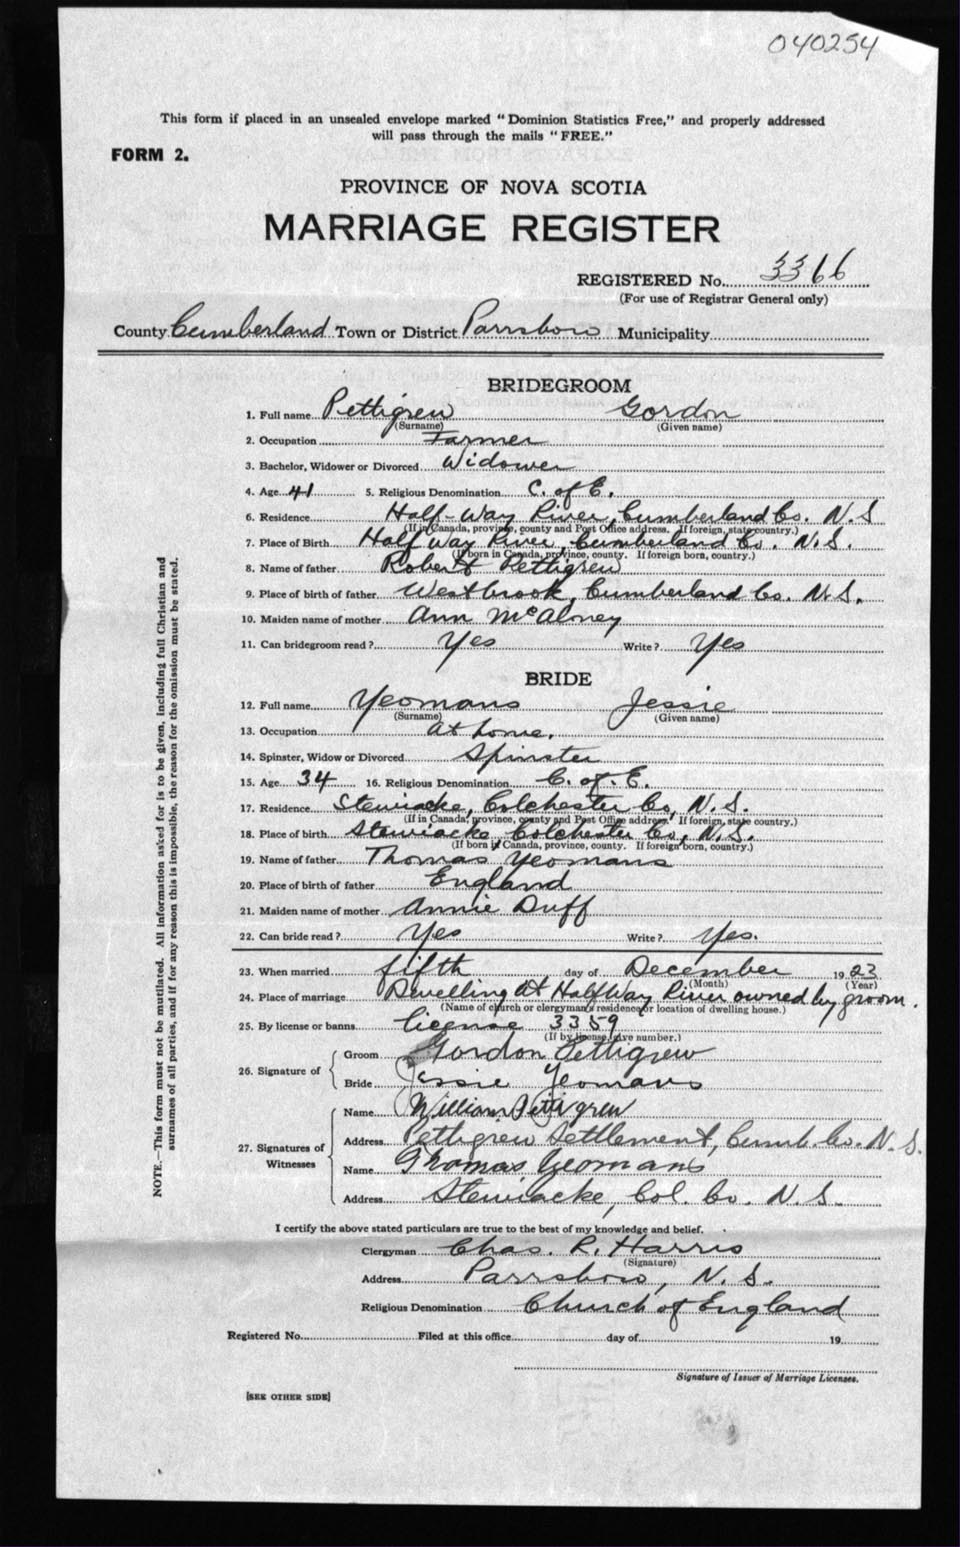 040254
This form if placed in an unsealed envelope marked "Dominion Statistics Free," and properly addressed
will pass through the mails "FREE."
FORM 2.
PROVINCE OF NOVA SCOTIA
MARRIAGE REGISTER
REGISTERED No. 3366
(For use of Registrar General only)
County Cumberland Town or District Parrsboro Municipality
BRIDEGROOM
1. Full name Pettigrew Gordon
(Surname) (Given name)
2. Occupation Farmer
3. Bachelor, Widower or Divorced Widower
4. Age 41 5. Religious Denomination C. of E.
6. Residence Half-Way River, Cumberland Co. N.S
(If in Canada, province, county and Post Office address. If foreign, state country.)
7. Place of Birth Half Way River, Cumberland Co. N.S.
(If born in Canada, province, county. If foreign born, county.)
8. Name of father Robert Pettigrew
9. Place of birth of father Westbrook, Cumberland Co. N.S.
10. Maiden name of mother Ann McAloney
11. Can bridegroom read? Yes Write? Yes
BRIDE
12. Full name Yeomans Jessie
(Surname) (Given name)
13. Occupation at home.
14. Spinster, Widow or Divorced Spinster
15. Age 34 16. Religious Denomination C. of. E.
17. Residence Stewiacke, Colchester Co, N.S.
(If in Canada, province, county and Post Office address. If foreign, state country.)
18. Place of birth Stewiacke Colchester Co, N.S.
(If born in Canada, province, county. If foreign born, country.)
19. Name of father Thomas Yeomans
20. Place of birth of father England
21. Maiden name of mother Annie Duff
22. Can bride read? Yes Write? Yes.
23. When married fifth day of December 1923
(Month) (Year)
24. Place of marriage Dwelling at Half Way River owned by groom.
(Name of church or clergyman's residence or location of dwelling house.)
25. By license or banns license 3359
(If by license, give number.)
26. Signature of
Groom Gordon Pettigrew
Bride Jessie Yeomans
27. Signatures of Witnesses
Name William Pettigrew
Address Pettigrew Settlement, Cumb. Co. N.S.
Name Thomas Yeomans
Address Stewiacke, Col. Co. N.S.
I certify the above stated particulars are true to the best of my knowledge and belief.
Clergyman Chas. R. Harris
(Signature)
Address Parrsboro, N.S.
Religious Denomination Church of England
Registered No. Filed at this office day of 19
Signature of Issuer of Marriage Licenses.
[SEE OTHER SIDE]
NOTE.—This form must not be mutilated. All information asked for is to be given, including full Christian and
surnames of all parties, and if for any reason this is impossible, the reason for the omission must be stated.